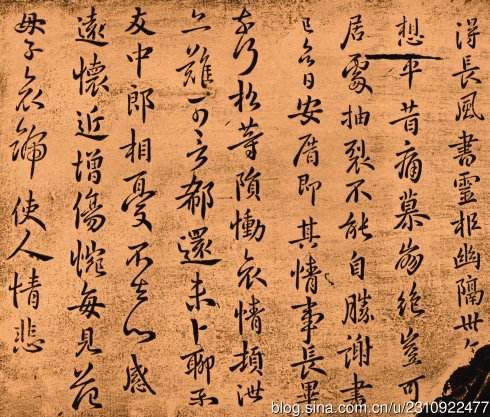 得長風書靈柩幽隔卅
想平昔痛慕崩絕豈可
居處抽裂不能自勝謝書
已日安厝即其情事長畢
奈何松等隕慟哀情頓泄
亦難可言郗還未卜聊示
友中郎相憂不去心感
遠懷近增傷惋每見范
母子哀號使人情悲
blog.sina.com.cn/u/2310922477